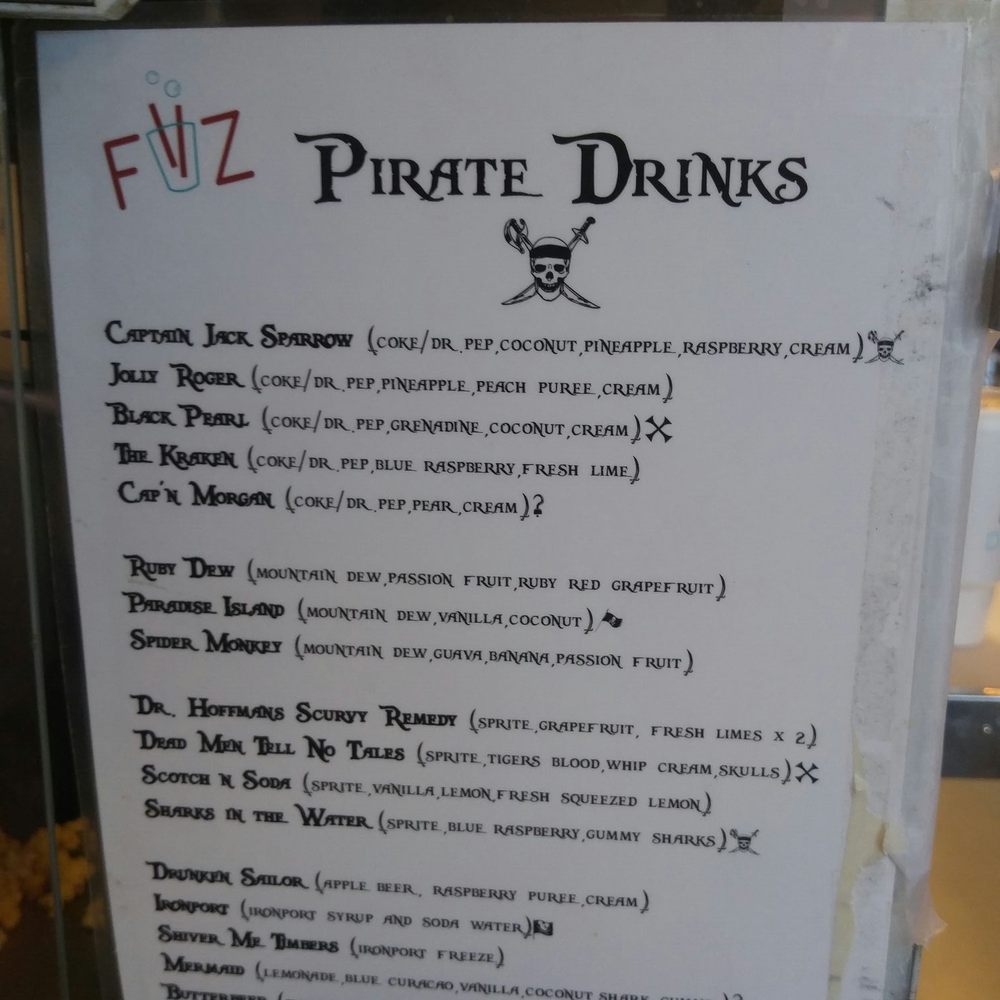 FIIZ
PIRATE DRINKS
CAPTAIN JACK SPARROW (COKE/DR.PEP,COCONUT,PINEAPPLE,RASPBERRY,CREAM)
JOLLY ROGER (COKE/DR.PEP,PINEAPPLE,PEACH PUREE,CREAM)
BLACK PEARL (COKE/DR.PEP,GRENADINE,COCONUT,CREAM)
THE KRAKEN (COKE/DR.PEP,BLUE RASPBERRY,FRESH LIME)
CAP'N MORGAN (COKE/DR.PEP,PEAR,CREAM)?
RUBY DEW (MOUNTAIN DEW,PASSION FRUIT,RUBY RED GRAPEFRUIT)
PARADISE ISLAND (MOUNTAIN DEW,VANILLA,COCONUT)
SPIDER MONKEY (MOUNTAIN DEW,GUAVA,BANANA,PASSION FRUIT)
DR. HOFFMANS SCURVY REMEDY (SPRITE,GRAPEFRUIT, FRESH LIMES X 2)
DEAD MEN TELL NO TALES (SPRITE,TIGERS BLOOD,WHIP CREAM,SKULLS)
SCOTCH N SODA (SPRITE,VANILLA,LEMON,FRESH SQUEEZED LEMON)
SHARKS IN THE WATER (SPRITE,BLUE RASPBERRY,GUMMY SHARKS)
DRUNKEN SAILOR (APPLE BEER, RASPBERRY PUREE,CREAM)
IRONPORT (IRONPORT SYRUP AND SODA WATER)
SHIVER ME TIMBERS (IRONPORT FREEZE)
MERMAID (LEMONADE,BLUE CURACAO,VANILLA,COCONUT SHARK GUMMY)?
BUTTERBEER